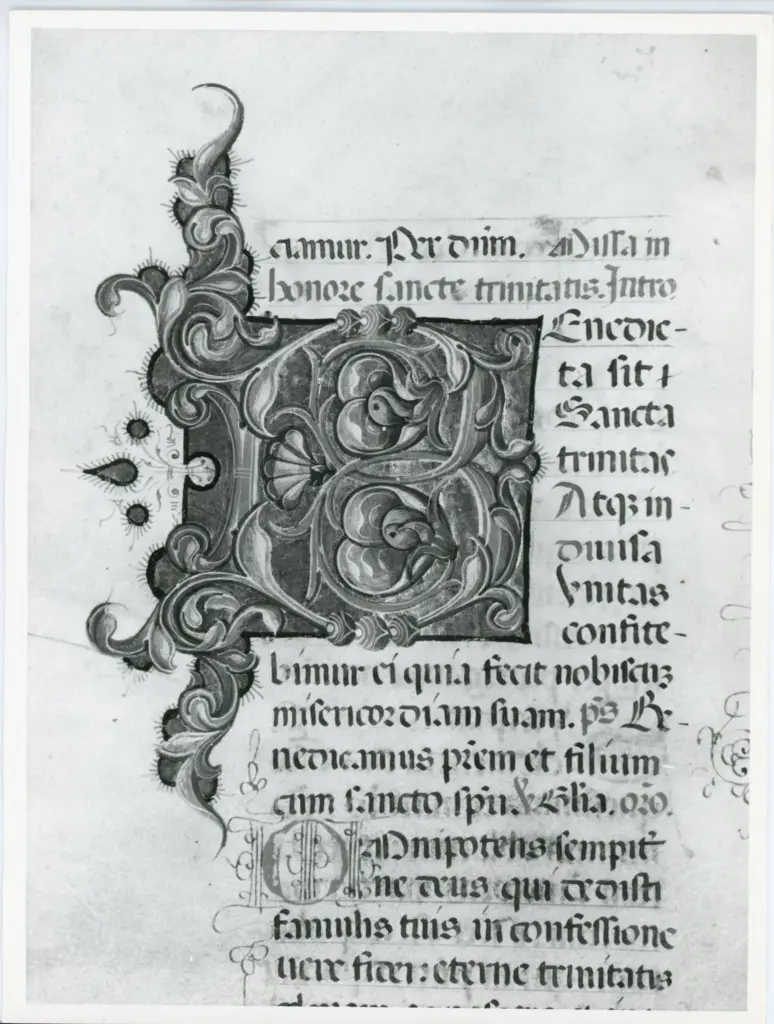 ciamur. Per dūm. Missa in
honore sancte trinitatis. Intro
BEnedic-
ta sit
Sancta
trinitas
Atqꝫ in-
diuisa
Vnitas
confite-
bimur ei quia fecit nobiscuꝫ
misericordiam suam. p̄s Be-
nedicamus p̄rem et filium
cum sancto sp̄u. Gl̄ia. or̄o.
OMnipotens sempit̄
ne deus qui dedisti
famulis tuis in confessione
uere fidei: eterne trinitatis